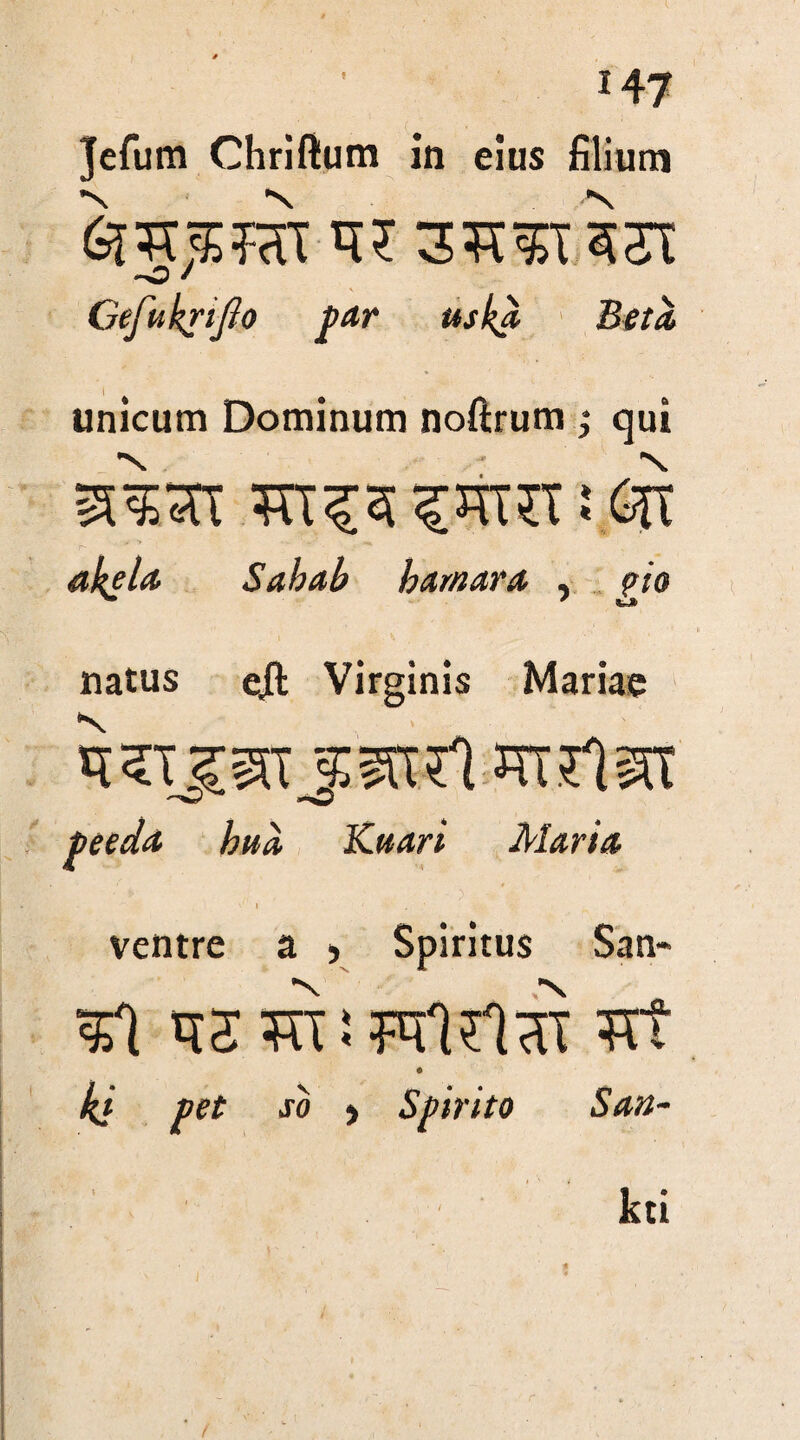 147
Jeſum Chriſtum in eius filium
जेसुक्रस्तो पर उसका बेटा
Geſukriſto par uskà Betà
unicum Dominum noſtrum ; qui
अकेला साहब हमारा : जो
akela Sahab hamara , gio
natus eſt Virginis Mariae
पेदा हुआ कुआरी मारीआ
peeda huà Kuari Maria
ventre a , Spiritus San-
की पट सो : स्पीरीतो सां
ki pet sò , Spirito San-
kti